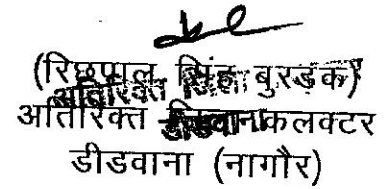 (रिछपाल सिंह बुरड़क)
अतिरिक्त कलक्टर
डीडवाना (नागौर)